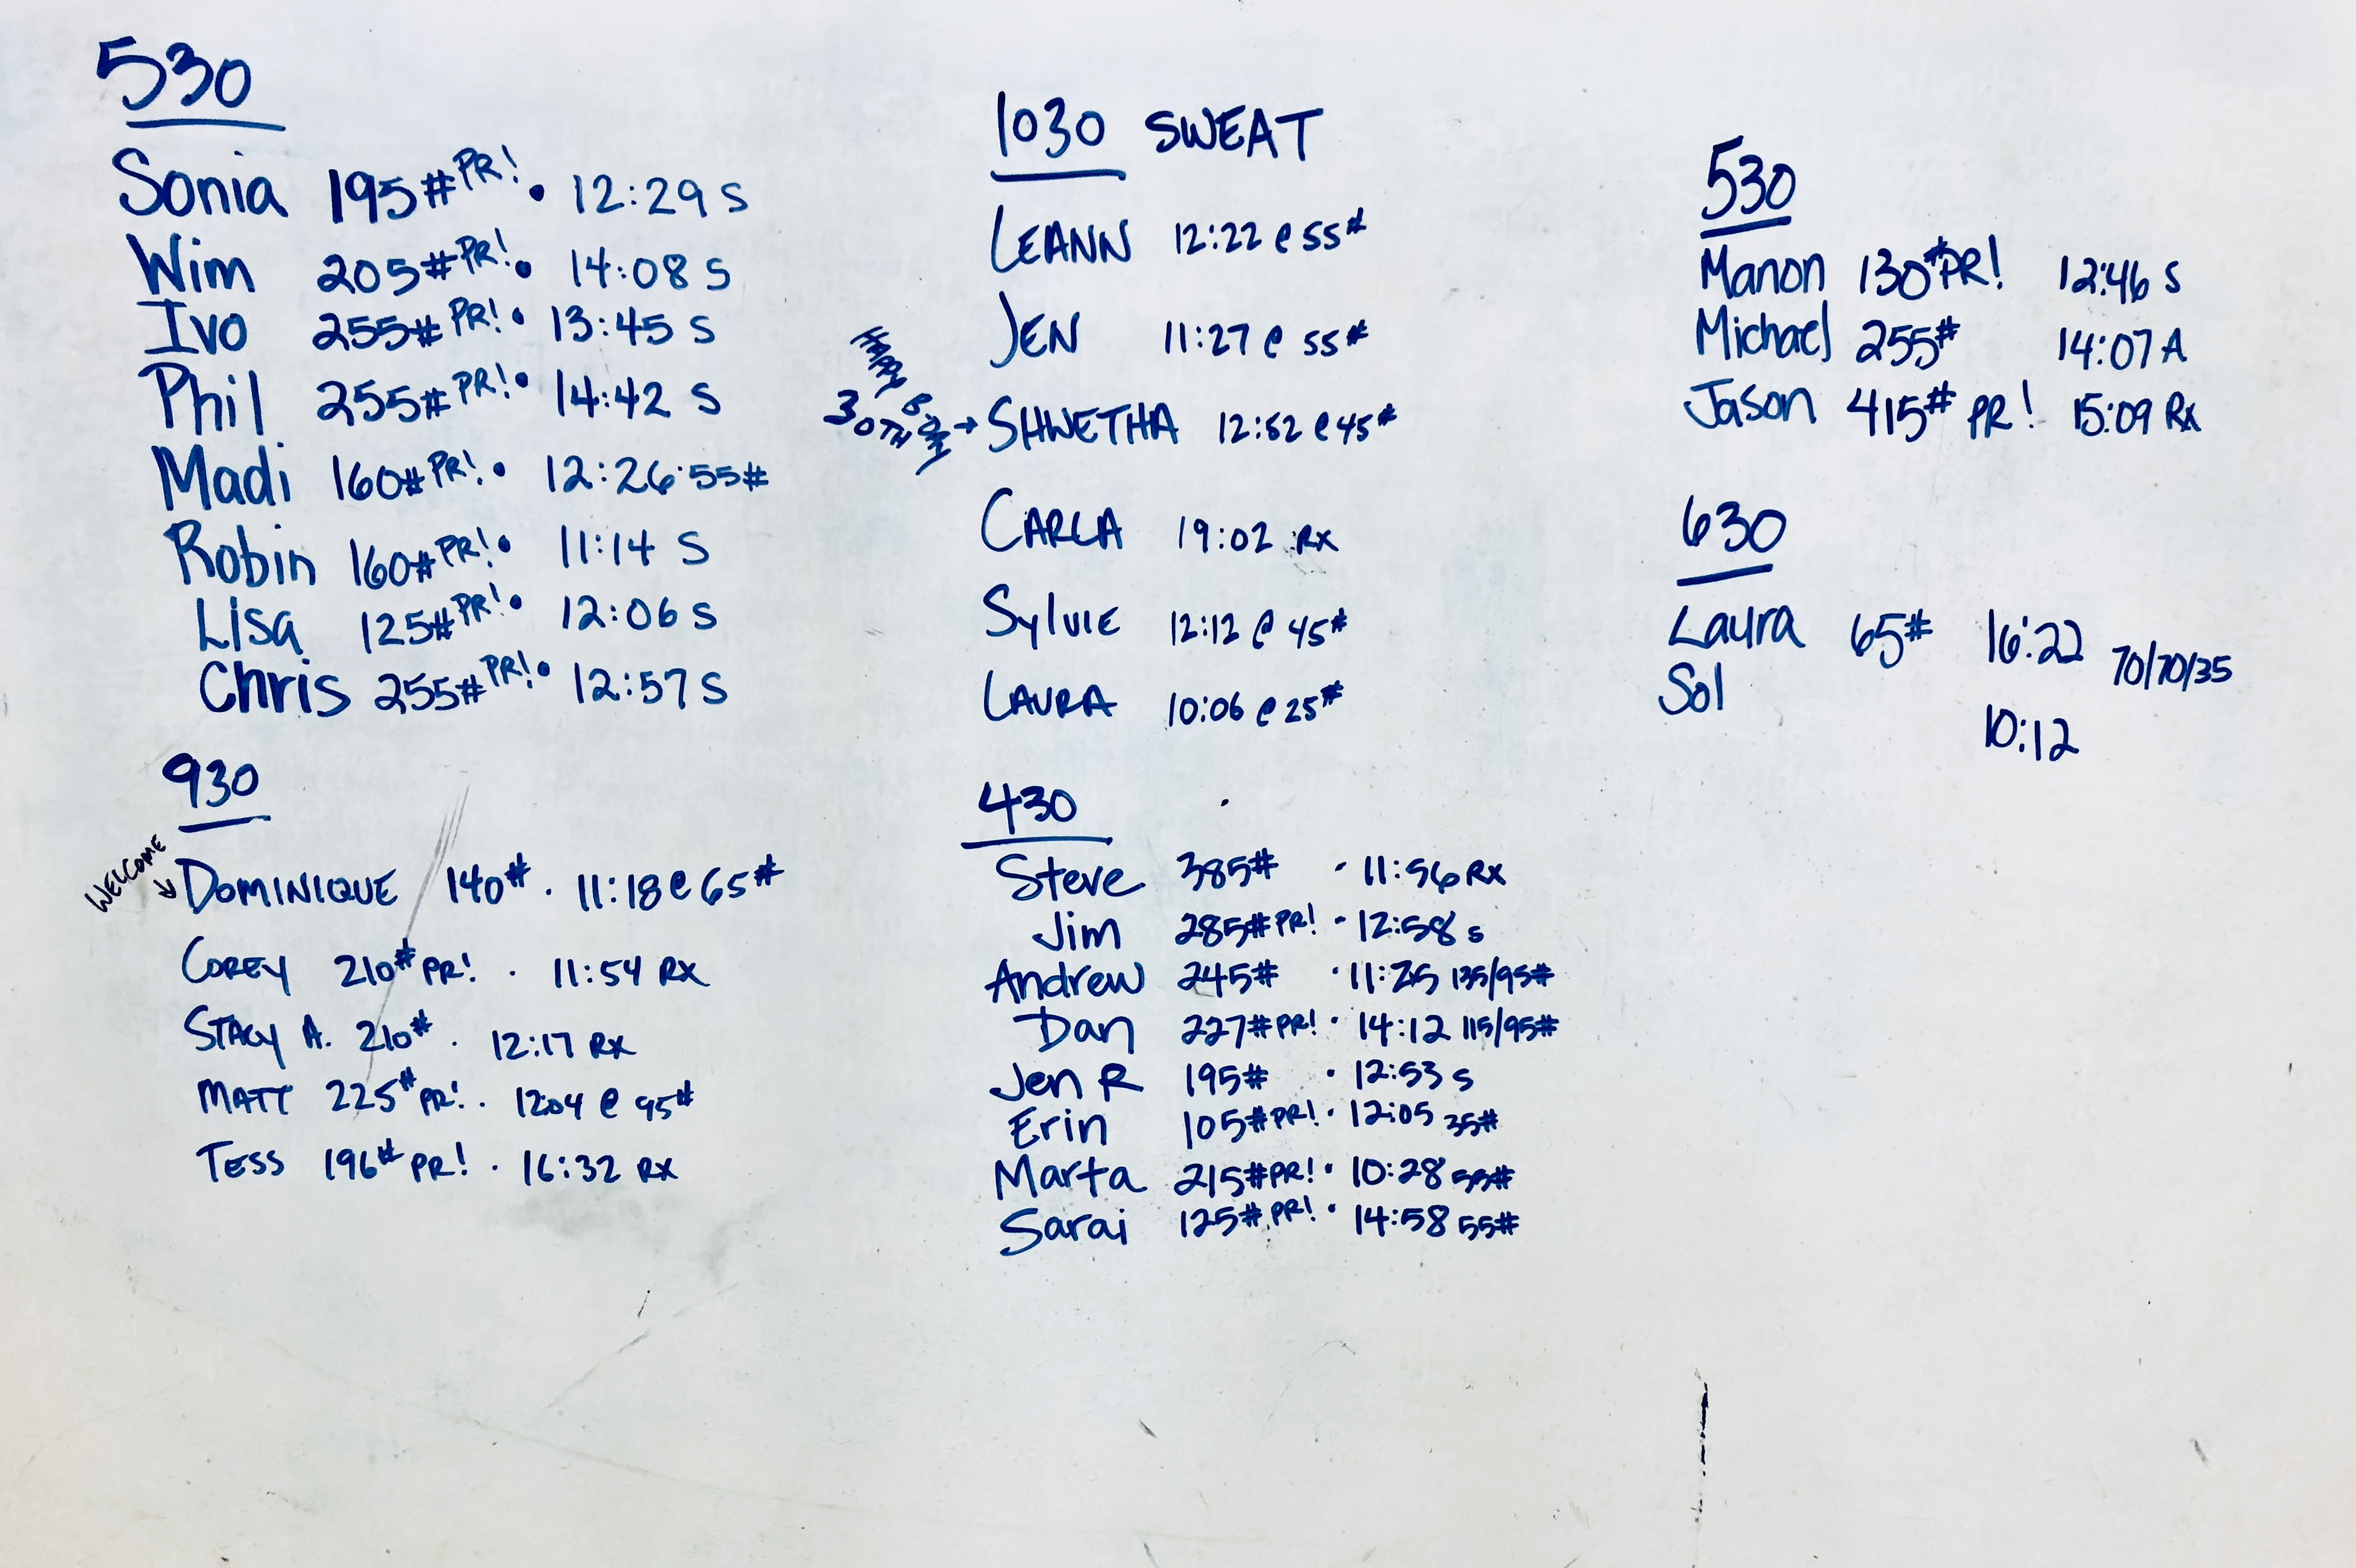 530
Sonia 195# PR! • 12:29 S
Wim 205# PR! • 14:08 S
Ivo 255# PR! • 13:45 S
Phil 255# PR! • 14:42 S
Madi 160# PR! • 12:26·55#
Robin 160# PR! • 11:14 S
Lisa 125# PR! • 12:06 S
Chris 255# PR! • 12:57 S
930
WELCOME
DOMINIQUE 140# · 11:18 @ 65#
COREY 210# PR! · 11:54 RX
STACY A. 210# · 12:17 RX
MATT 225# PR! · 12:04 @ 95#
TESS 196# PR! · 16:32 RX
1030 SWEAT
LEANN 12:22 @ 55#
JEN 11:27 @ 55#
HAPPY
30TH BDAY! →
SHWETHA 12:52 @ 45#
CARLA 19:02 RX
SYLVIE 12:12 @ 45#
LAURA 10:06 @ 25#
430
Steve 385# · 11:56 Rx
Jim 285# PR! · 12:58 s
Andrew 245# · 11:25 135/95#
Dan 227# PR! · 14:12 115/95#
Jen R 195# · 12:53 s
Erin 105# PR! · 12:05 35#
Marta 215# PR! · 10:28 55#
Sarai 125# PR! · 14:58 55#
530
Manon 130# PR! 12:46 S
Michael 255# 14:07 A
Jason 415# PR! 15:09 Rx
630
Laura 65# 16:22 70/70/35
Sol 10:12